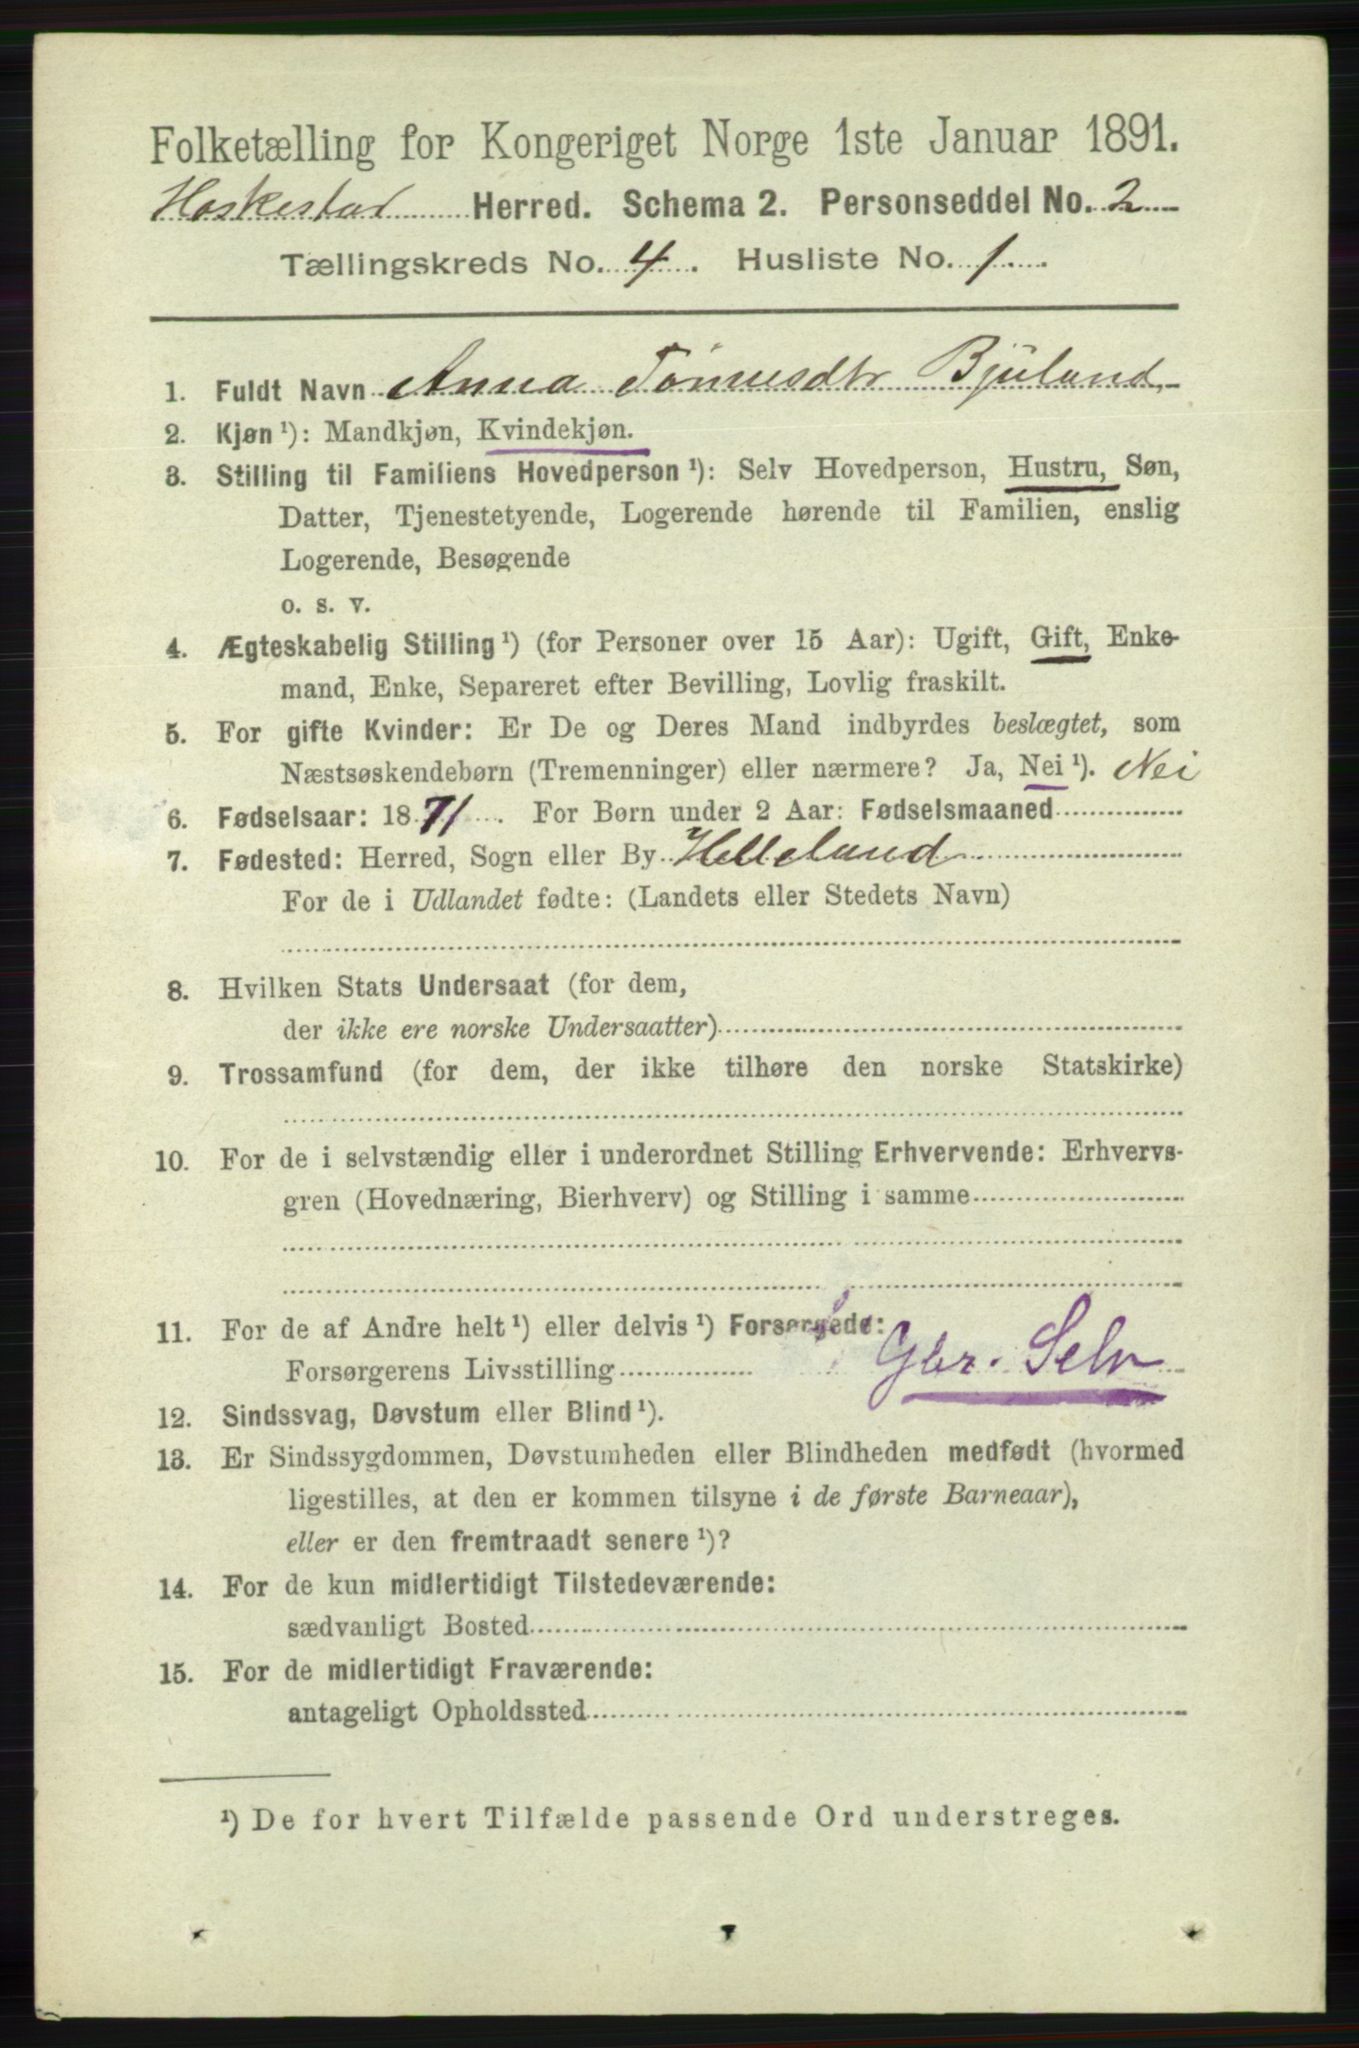 Folketælling for Kongeriget Norge 1ste Januar 1891.
Heskestad Herred. Schema 2. Personseddel No. 2
Tællingskreds No. 4. Husliste No. 1.
1. Fuldt Navn Anna Tønnesdtr Bjuland,
2. Kjøn ¹): Mandkjøn, Kvindekjøn.
3. Stilling til Familiens Hovedperson ¹): Selv Hovedperson, Hustru, Søn,
Datter, Tjenestetyende, Logerende hørende til Familien, enslig
Logerende, Besøgende
o. s. v.
4. Ægteskabelig Stilling ¹) (for Personer over 15 Aar): Ugift, Gift, Enke-
mand, Enke, Separeret efter Bevilling, Lovlig fraskilt.
5. For gifte Kvinder: Er De og Deres Mand indbyrdes beslægtet, som
Næstsøskendebørn (Tremenninger) eller nærmere? Ja, Nei ¹). Nei
6. Fødselsaar: 1871. For Børn under 2 Aar: Fødselsmaaned
7. Fødested: Herred, Sogn eller By Helleland
For de i Udlandet fødte: (Landets eller Stedets Navn)
8. Hvilken Stats Undersaat (for dem,
der ikke ere norske Undersaatter)
9. Trossamfund (for dem, der ikke tilhøre den norske Statskirke)
10. For de i selvstændig eller i underordnet Stilling Erhvervende: Erhvervs-
gren (Hovednæring, Bierhverv) og Stilling i samme
11. For de af Andre helt ¹) eller delvis ¹) Forsørgede:
Forsørgerens Livsstilling Gbr. Selv
12. Sindssvag, Døvstum eller Blind ¹).
13. Er Sindssygdommen, Døvstumheden eller Blindheden medfødt (hvormed
ligestilles, at den er kommen tilsyne i de første Barneaar),
eller er den fremtraadt senere ¹)?
14. For de kun midlertidigt Tilstedeværende:
sædvanligt Bosted
15. For de midlertidigt Fraværende:
antageligt Opholdssted
¹) De for hvert Tilfælde passende Ord understreges.